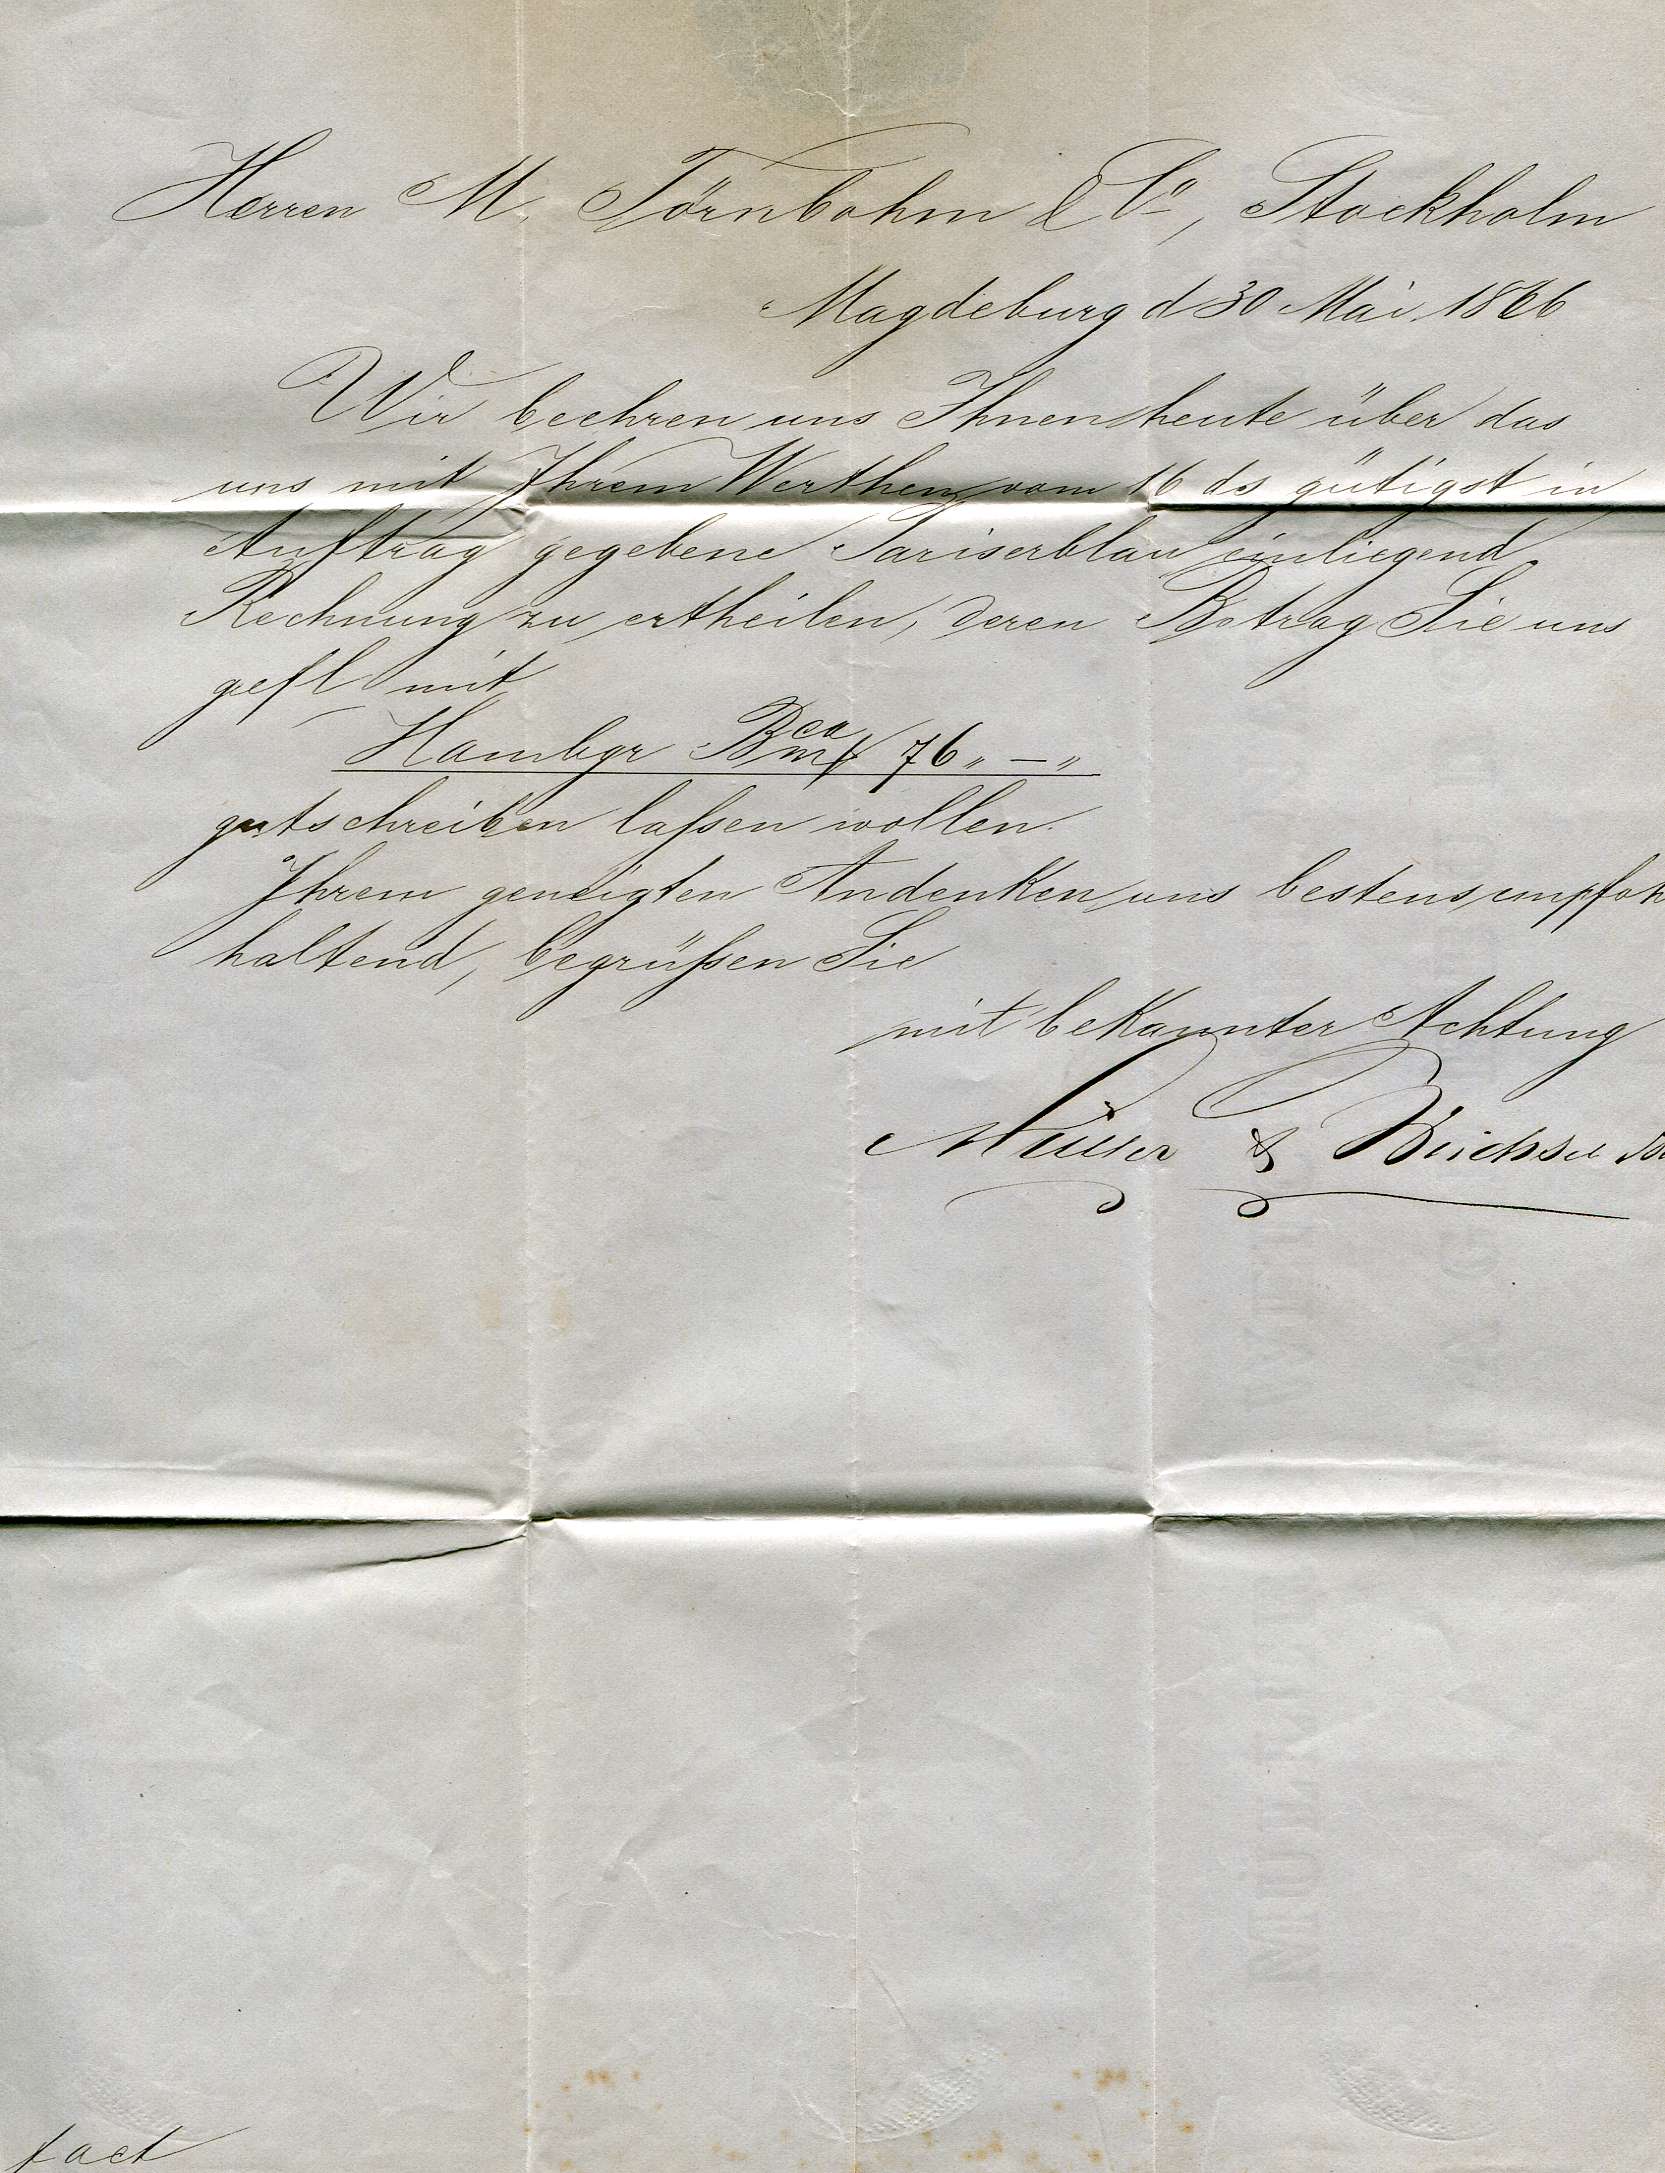 Herren M. Törnbohm & Co, Stockholm
Magdeburg d 30 Mai 1866
Wir beehren uns Ihnen heute über das
uns mit Ihrem Werthen vom 16 ds gütigst in
Auftrag gegebene Pariserblau einliegend
Rechnung zu ertheilen, deren Betrag Sie uns
gefl mit
Hambgr Bco mk 76 „ – „
gutschreiben laßen wollen.
Ihrem geneigten Andenken uns bestens empfoh
haltend, begrüßen Sie
mit bekannter Achtung
Müller &
fact